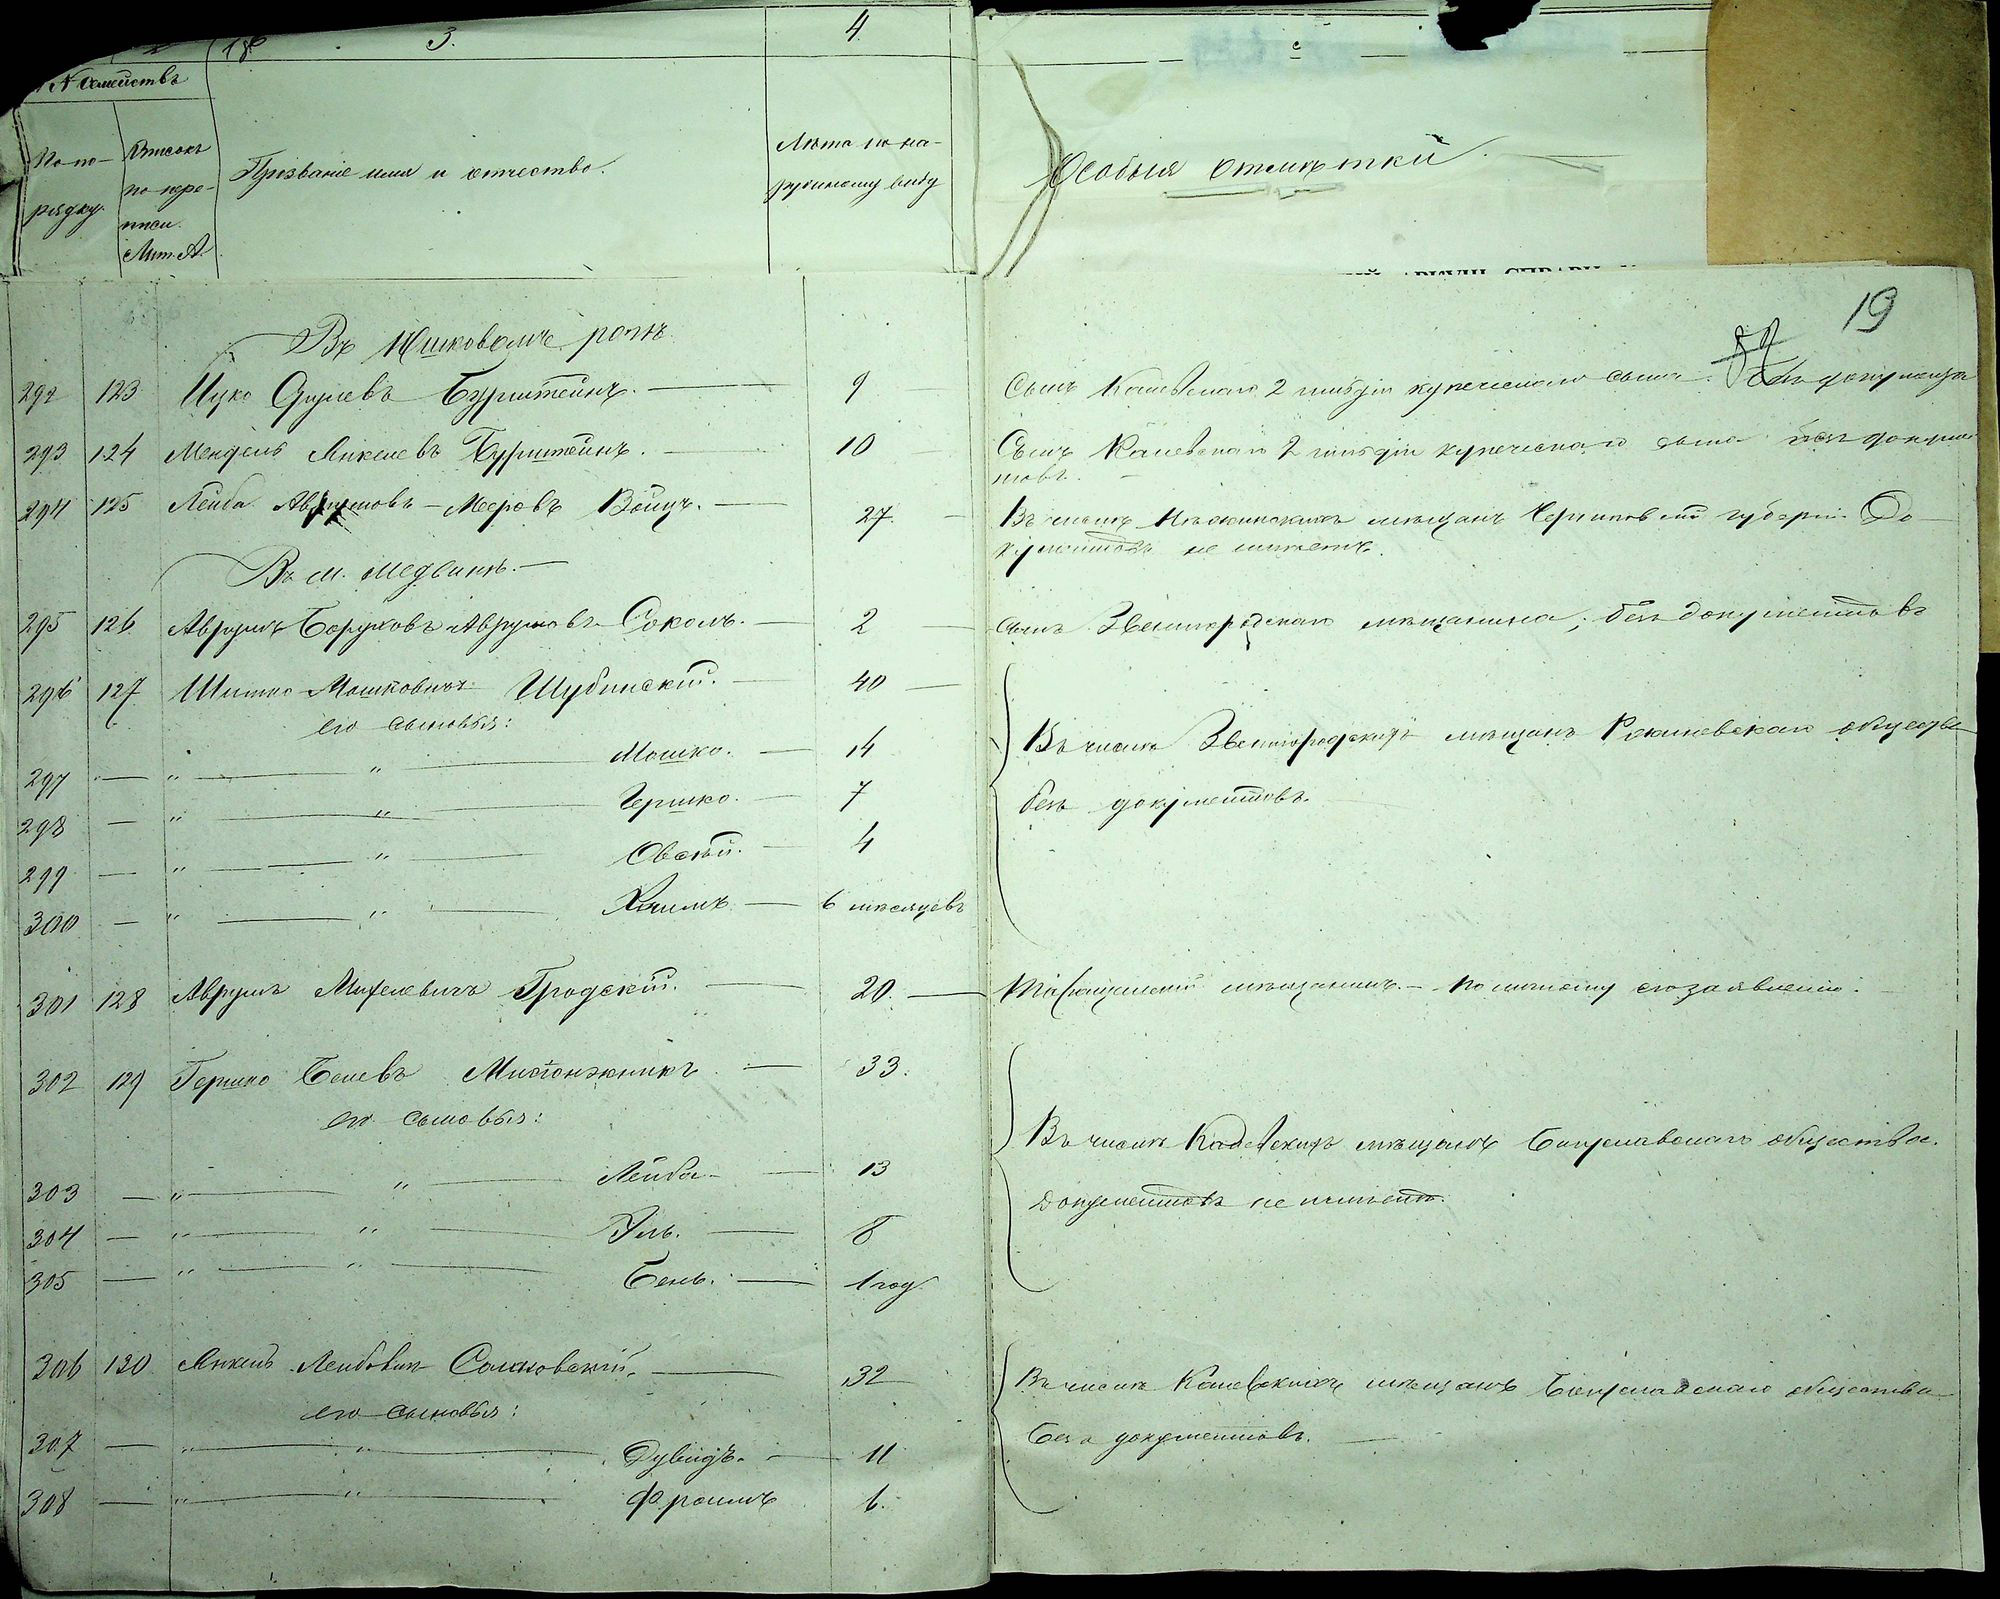 3.
4
№ Семействъ
По по-
рядку
Вписокъ
по пере-
писи
Лит. А.
Прозваніе имя и отчество.
Лѣта по на-
ружному виду
Особыя отмѣтки
19
Въ Юшковомъ рогѣ.
292 123 Ицко Срулевъ Бурштейнъ. — 9 Сынъ Каневскаго 2 гильдіи купеческаго сына. безъ документа
293 124 Мендель Янкелевъ Бурштейнъ. — 10 Сынъ Каневскаго 2 гильдіи купеческаго сына безъ докумен
товъ.
294 125 Лейба Аврумовъ-Меровъ — 27. Въ числѣ мѣщанъ Черниговской губерніи До-
кументовъ не имѣетъ.
Въ м. Медвинѣ. —
295 126 Аврумъ Боруховъ-Аврумовъ Соколъ. — 2 сынъ Звенигородскаго мѣщанина, безъ документовъ
296 127 Шимко Мошковичъ Шубинскій. — 40 —
его сыновья:
Въ числѣ Звенигородскихъ мѣщанъ общества
297 — „ — „ — Мошко. — 14
298 — „ — „ — Гершко. — 7
безъ документовъ.
299 — „ — „ — Овсѣй. — 4
300 — „ — „ — Хаимъ — 6 мѣсяцевъ
301 128 Аврумъ Гродскій. — 20. — мѣщанинъ — по личному его заявленію.
302 129 Гершко Беневъ — 33.
его сыновья:
Въ числѣ Каневскихъ мѣщанъ Богуславскаго общества.
303 — „ — „ — Лейба — 13
документовъ не имѣетъ.
304 — „ — „ — — 8
305 — „ — „ — Бень. — 1 год
306 130 Янкель Лейбовичъ — 32
Въ числѣ Каневскихъ мѣщанъ Богуславскаго общества
его сыновья:
307 — „ — „ — Дувидъ. — 11
безъ документовъ. —
308 — „ — „ — Фроимъ 6.